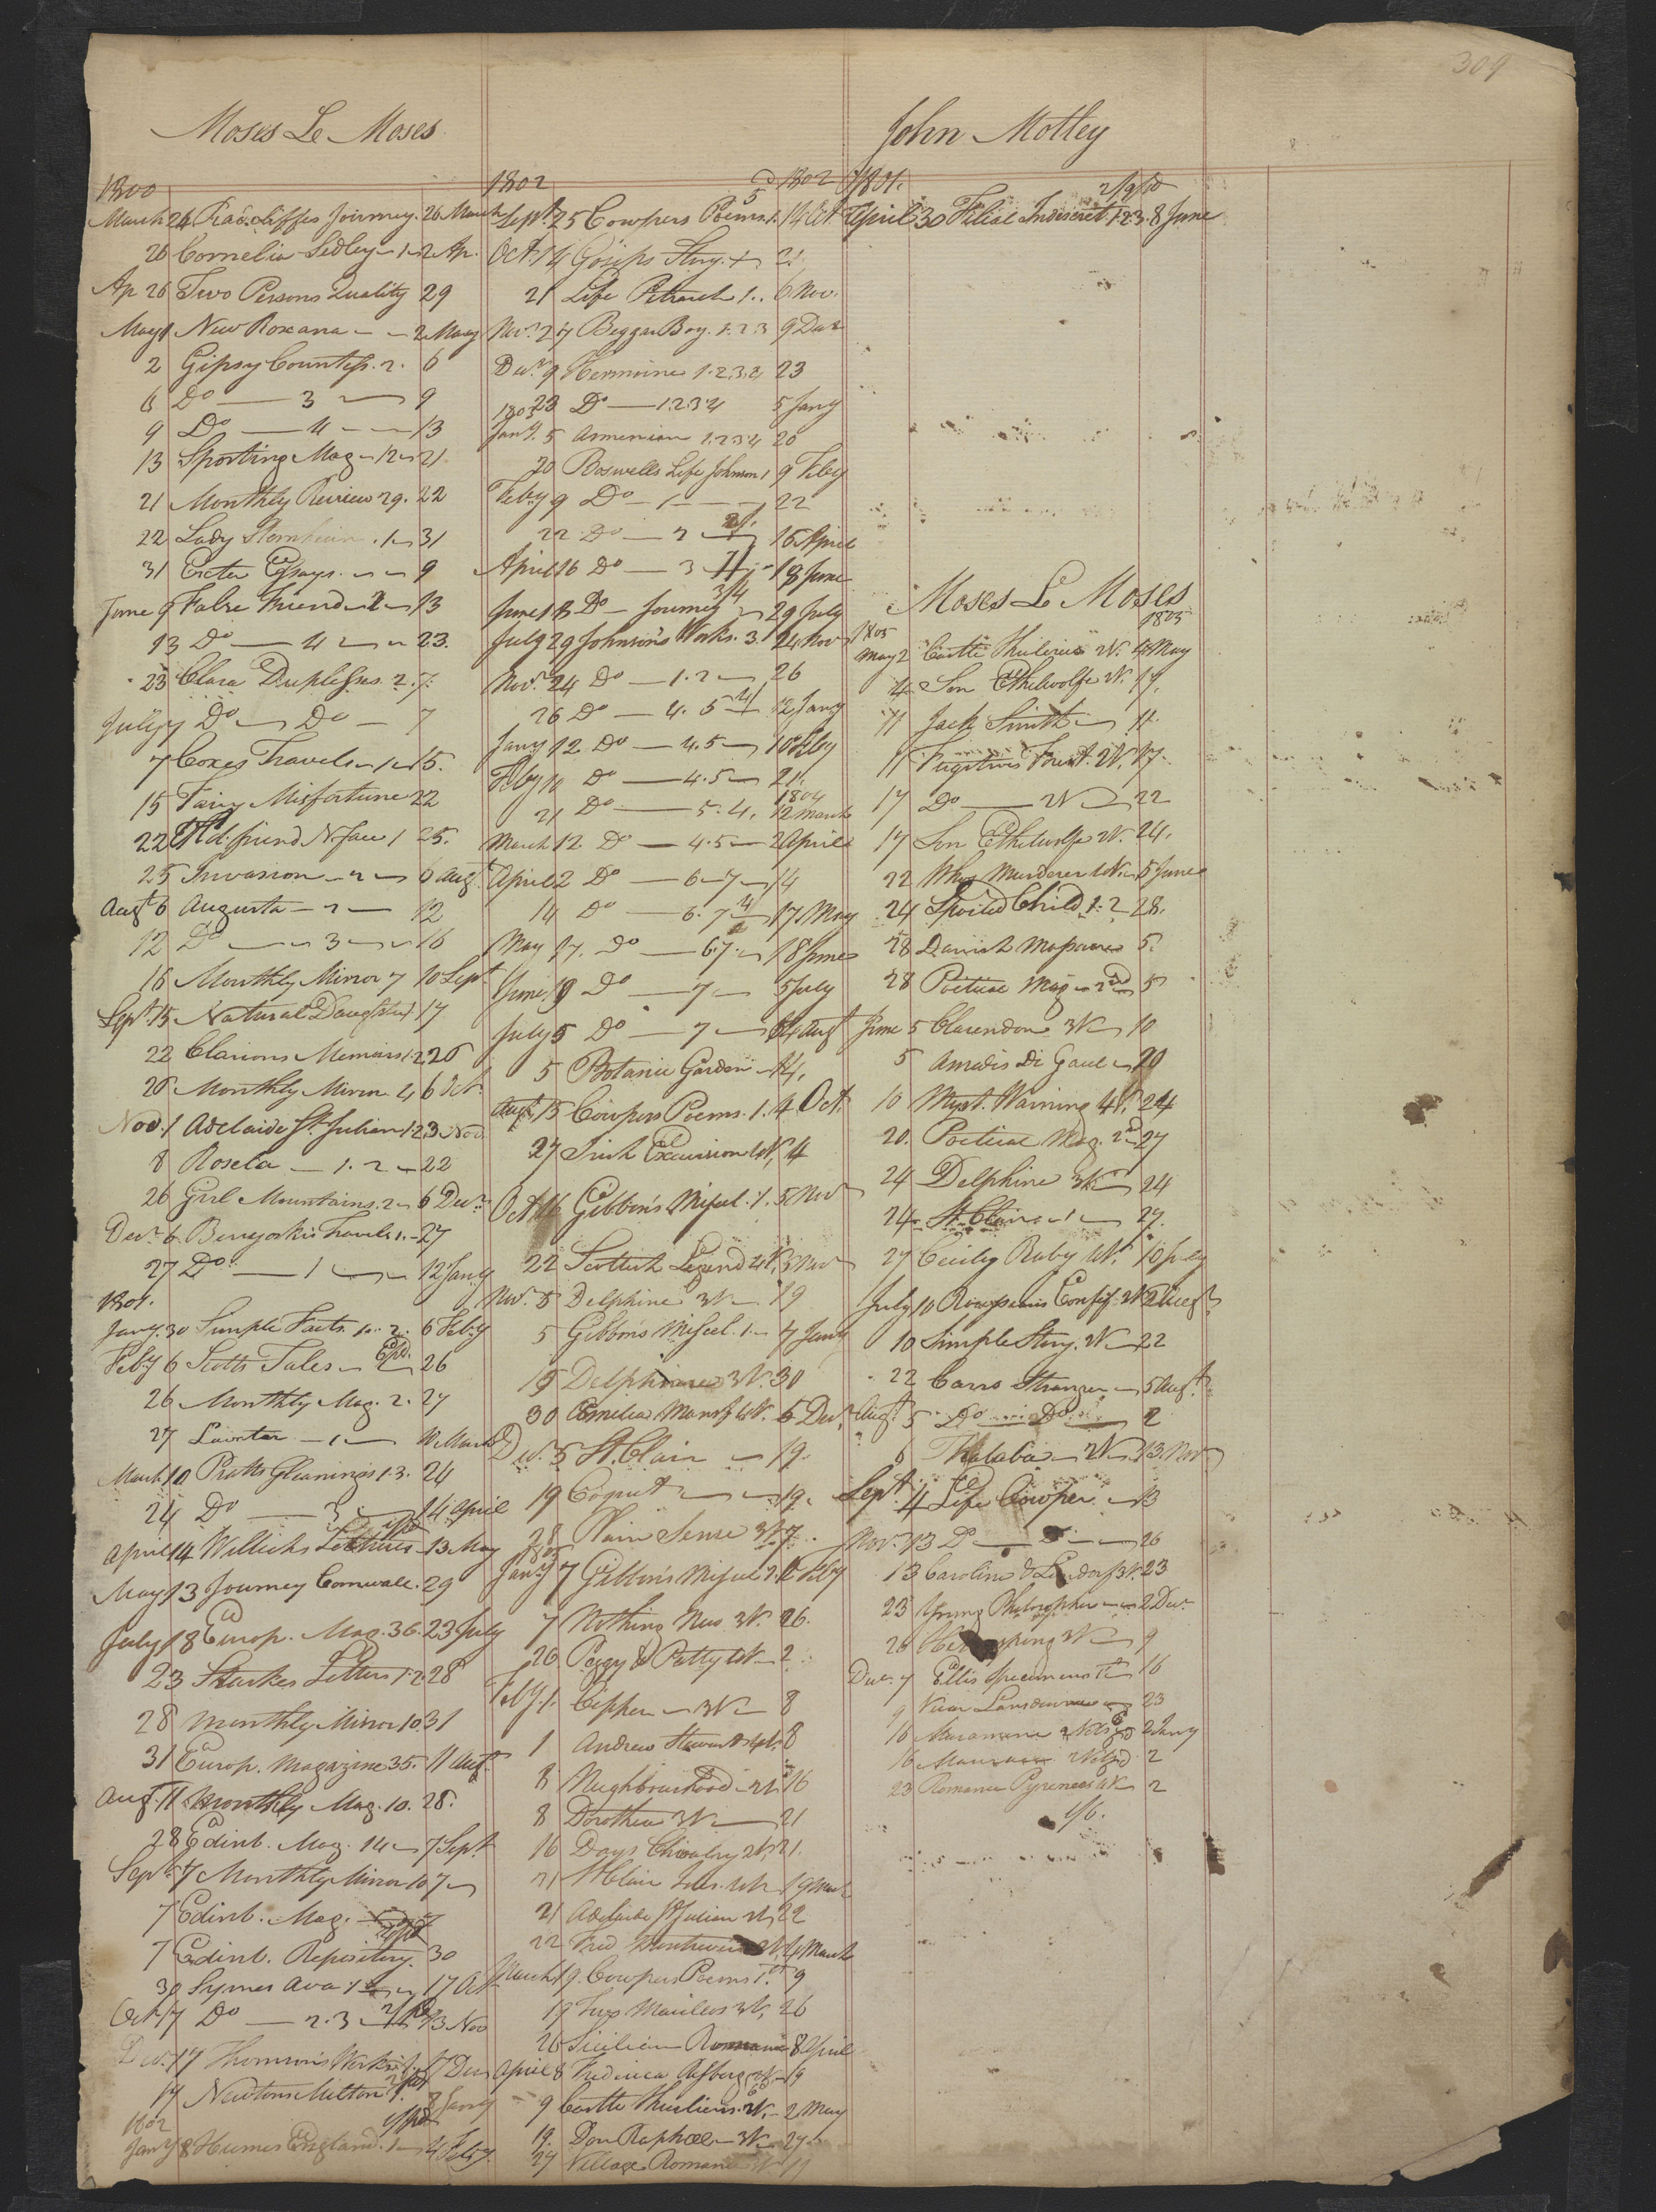 309
Moses Le Moses
1800
March 24 Radcliffes Journey. 26 March
26 Cornelia Sedley 1 2 Ap.
Ap 26 Two Persons Quality 29
May 1 New Roxana 2 May
2 Gipsy Countess. 2. 6
6 Do 3 9
9 Do 4 13
13 Sporting Mag 12 21
21 Monthly Review 29. 22
22 Lady Sternheim. 1 31
31 Exeter Essays. 9
June 9 False Friend 2 13
13 Do 4 23.
23 Clara Duplessis. 2. 7.
July 7 Do Do 7
7 Coxes Travels 1 15.
15 Fairy Misfortune 22
22 Old friend N. face 1 25.
25 Invasion 2 6 Aug
Augt 6 Augusta 2 12
12 Do 3 16
16 Monthly Mirror 7 10 Sept
Sept. 15 Natural Daughter 17
22 Clarions Memoirs 1.2 26
26 Monthly Mirror. 4 6 Oct.
Nov. 1 Adelaide St. Julian 1.2 3 Nov
8 Rosella 1. 2 22
26 Girl Mountains. 2 6 Decr.
Decr. 6 Benyoskis Travels 1. 27
27 Do 1 12 Jany
1801.
Jany. 30 Simple Facts. 1. 2. 6 Feby
Feby 6 Scotts Tales 26
26 Monthly Mag. 2. 27
27 Lavater 1 10 March
March 10 Pratts Gleanings 1.3. 24
24 Do 3 14 April
April 14 Willichs Lectures 13 May
May 13 Journey Cornwall. 29
July 18 Europ. Mag. 36. 23 July
23 Starkes Letters 1.2 28
28 Monthly Mirror 10 31
31 Europ. Magazine 35. 11 Augt.
Augt. 11 Monthly Mag. 10. 28.
28 Edinb. Mag. 14 7 Sept
Sept 7 Monthly Mirror 10 7
7 Edinb. Mag. 7
7 Edinb. Repository. 30
30 Symes Ava 1 17 Oct
Oct 17 Do 2. 3 13 Nov
Dec. 17 Thomson's Works 17 Dec
17 Newtons Milton 1. 8 Jany
1802
Jany 8 Humes England. 1 4 Feby
1802 1802
Sept. 25 Cowpers Poems 1. 14 Oct
Oct 14 Gossips Story. 21.
21 Life Petrarch 1.. 6 Nov.
Novr. 27 Beggar Boy. 1. 2 3 9 Decr
Decr. 9 Hermione 1. 2. 3. 4 23
23 Do 1.2.3.4 5 Jany
1803
Jany. 5 Armenian 1.2.3.4 20
20 Boswells Life Johnson 1 9 Feby
Feby 9 Do 1 22
22 Do 2 16 April
April 16 Do 3 18 June
June 18 Do Journey 29 July
July 29 Johnson's Works. 3. 24 Nov
Novr. 24 Do 1. 2 26
26 Do 4. 5 12 Jany
Jany 12 Do 4.5 10 Feby
Feby 10 Do 4.5 21.
1804
21 Do 5. 4. 12 March
March 12 Do 4.5 2 April
April 2 Do 6 7 14
14 Do 6. 7 17 May
May 17. Do 6 7 18 June
June 18 Do 7 5 July
July 5 Do 7 14 Augt
5 Botanic Garden 14.
Augt 15 Cowpers Poems. 1. 4 Oct.
27 Irish Excursion 4V. 4
Oct 16 Gibbon's Miscel. 1. 5 Novr
22 Scottish Legend 4V. 5 Nov
Nov. 5 Delphine 3V 19
5 Gibbons Miscel. 1. 7 Jany
19 Delphine 3V. 30
30 Emelia Mansf 4V. 5 Decr.
Decr. 5 St. Clair 19.
19 Coquet 19.
28 Plain Sense 3V 7.
1805
Jany 7 Gibbon's Miscel 2. 12 Feby
7 Nothing New 3V. 26.
26 Peggy & Patty 4V 2
Feby. 1. Cipher 3V 8
1 Andrew Stewart 4V. 8
8 Neighbourhood 2V. 16
8 Dorothea 3V 21
16 Days Chivalry 2V. 21.
21 St Clair 19 March
21 Adelaide St Julian 2V 22
22 Fred 2V. 4 March
March 19. Cowpers Poems 1st. 9
19 3V. 26
26 Sicilian Romance 8 April
April 8 Frederica Risberg 2V. 19
9 Castle Thuliers. 2V. 2 May
19. Don Raphael 3V 27
27 Village Romance 2V 17
John Motley
1801.
April 30 Filial Indiscret. 1.2.3. 8 June
Moses Le Moses
1805 1805
May 2 Castle Thulieries 2V. 4 May
4 Son Ethelwolfe 2V. 17.
11 Jack Smith 11.
11 Fugitives Forest. 2V. 17.
17 Do 2V 22
17 Son Ethelwolfe 2V. 24.
22 Whos Murderer 4V. 5 June
24 Spoiled Child 1. 2 28.
28 Danish Massacre 5.
28 Poetical Mag 2nd 5
June 5 Clarendon 3V 10
5 Amadis De Gaul 20
10 Myst. Warning 4V. 24
20. Poetical Mag. 2nd 27
24 Delphine 3V 24
24 St. Clair 1 27.
27 Cecily Raby 4V. 10 July
July 10 Rousseaus Confes. 2V 2 Augt
10 Simple Story. 2V 22
22 Carrs Stranger 5 Augt.
Augt. 5 Do Do 2
6 Thalaba 2V. 13 Nov
Sept 4 Life Cowper 13
Novr. 13 Do 26
13 Caroline of Lichdorf 3V. 23
23 Young Philosopher 2 Decr.
26 3V 9
Decr. 7 Ellis Specimens 1st 16
9 Vicar Lansdowne 23
16 2 Vols 2 Jany
16 2 Vols 2
23 Romance Pyrenees 4V 2
1/6.